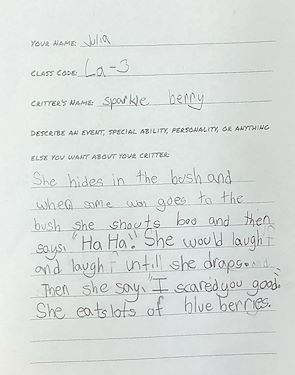 YOUR NAME: Julia
CLASS CODE: La-3
CRITTER'S NAME: sparkle berry
DESCRIBE AN EVENT, SPECIAL ABILITY, PERSONALITY, OR ANYTHING
ELSE YOU WANT ABOUT YOUR CRITTER:
She hides in the bush and
when some won goes to the
bush she shouts boo and then
says, "Ha Ha!" She would laugh
and laugh untill she drops.
Then she say, "I scared you good."
She eats lots of blue berries.